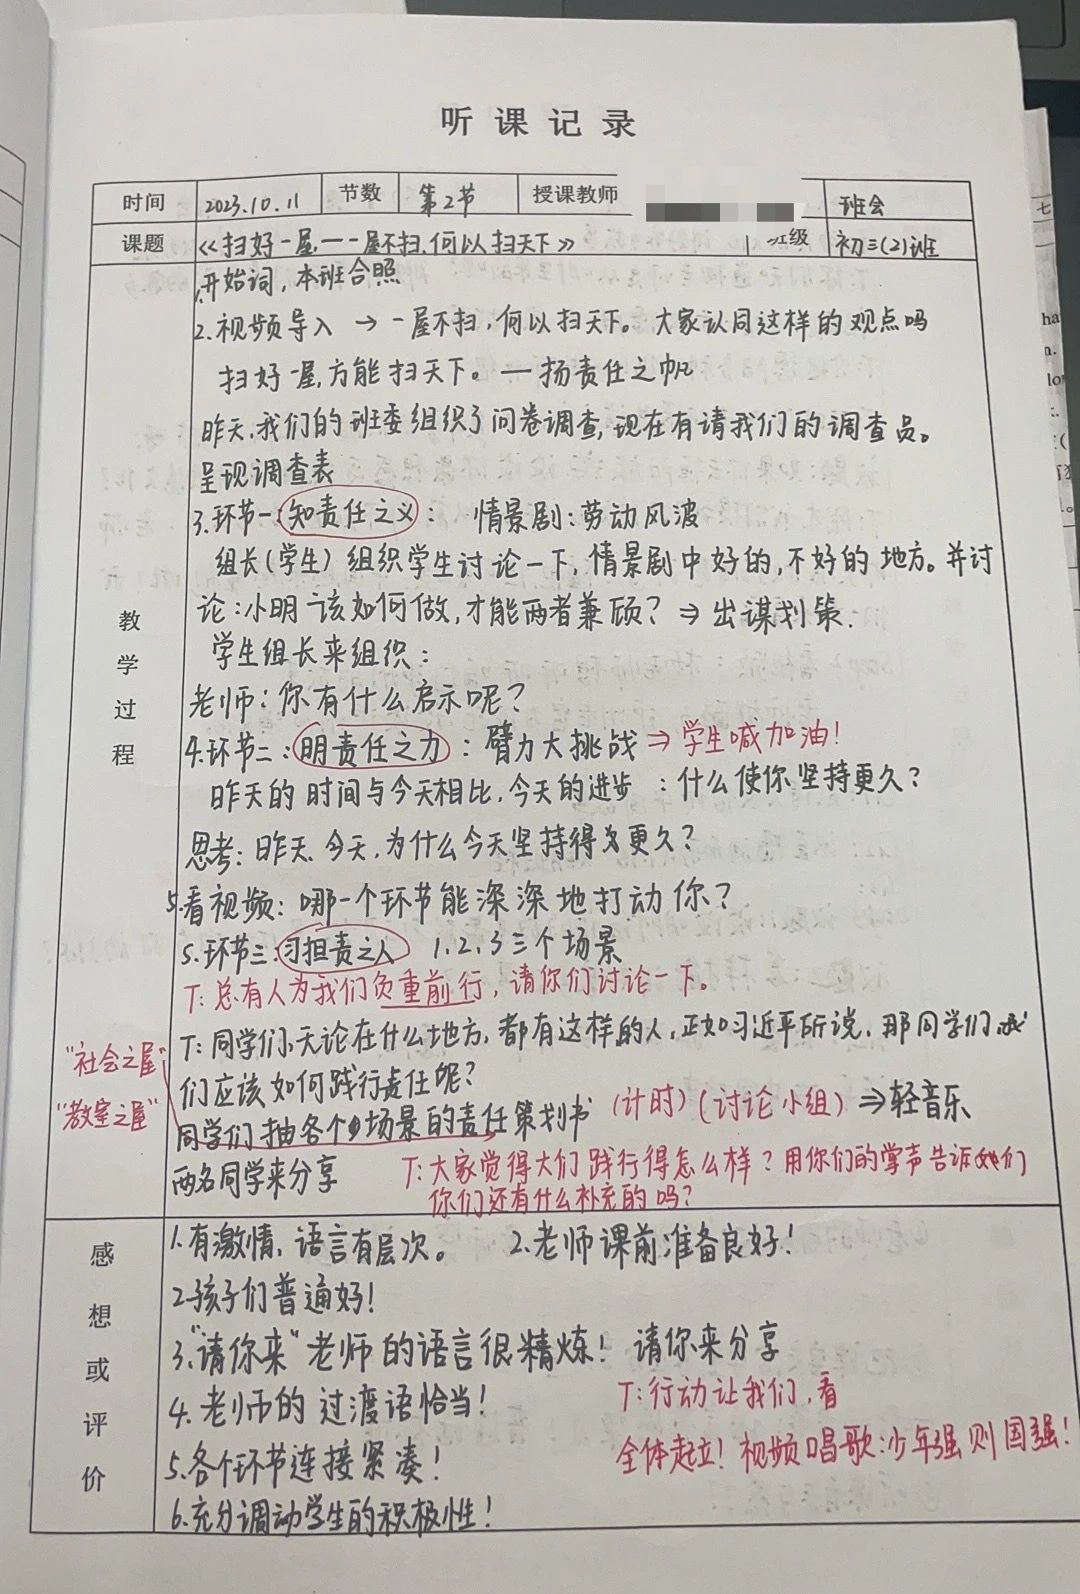 听课记录
时间 2023.10.11 节数 第2节 授课教师 班会
课题 《扫好一屋,——一屋不扫,何以扫天下》 班级 初三(2)班
教学过程
1.开始词,本班合照
2.视频导入 → 一屋不扫,何以扫天下。大家认同这样的观点吗
扫好一屋,方能扫天下。—扬责任之帆
昨天,我们的班委组织了问卷调查,现在有请我们的调查员。
呈现调查表
3.环节一:知责任之义: 情景剧:劳动风波
组长(学生)组织学生讨论一下,情景剧中好的,不好的地方。并讨
论:小明该如何做,才能两者兼顾?⇒出谋划策.
学生组长来组织:
老师:你有什么启示呢?
4.环节二:明责任之力:臂力大挑战⇒学生喊加油!
昨天的时间与今天相比,今天的进步:什么使你坚持更久?
思考:昨天、今天,为什么今天坚持得更久?
5.看视频:哪一个环节能深深地打动你?
5.环节三:习担责之人 1.2.3三个场景
T:总有人为我们负重前行,请你们讨论一下。
T:同学们,无论在什么地方,都有这样的人,正如习近平所说,那同学们,我
"社会之屋"
们应该如何践行责任呢?
"教室之屋"
同学们抽各个场景的责任策划书 (计时)(讨论小组)⇒轻音乐
两名同学来分享 T:大家觉得大们践行得怎么样?用你们的掌声告诉她们
你们还有什么补充的吗?
感想或评价
1.有激情,语言有层次。 2.老师课前准备良好!
2.孩子们普通好!
3."请你来"老师的语言很精炼! 请你来分享
4.老师的过渡语恰当! T:行动让我们,看
5.各个环节连接紧凑! 全体起立!视频唱歌:少年强则国强!
6.充分调动学生的积极性!